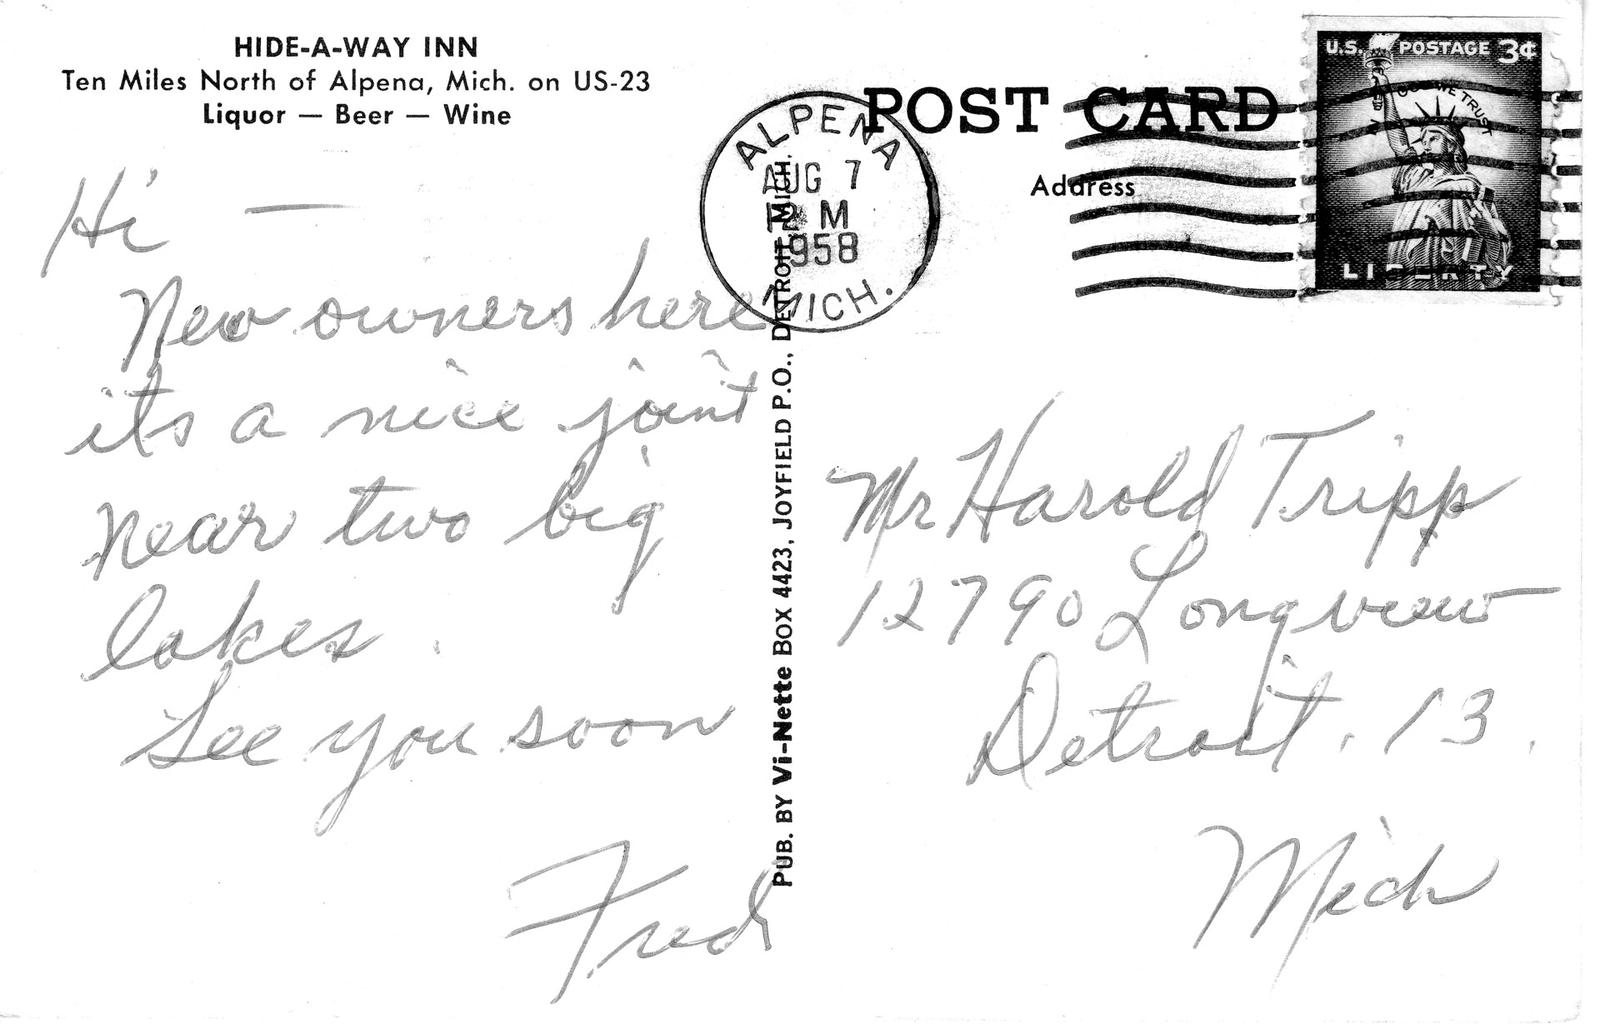 HIDE-A-WAY INN
Ten Miles North of Alpena, Mich. on US-23
Liquor — Beer — Wine
Hi —
New owners here
its a nice joint
near two big
lakes.
See you soon
Fred
PUB. BY Vi-Nette BOX 4423, JOYFIELD P.O., DETROIT, MICH.
POST CARD
Address
ALPENA
AUG 7
M
1958
MICH.
U.S. POSTAGE 3¢
IN GOD WE TRUST
LIBERTY
Mr Harold Tripp
12790 Longview
Detroit. 13.
Mich